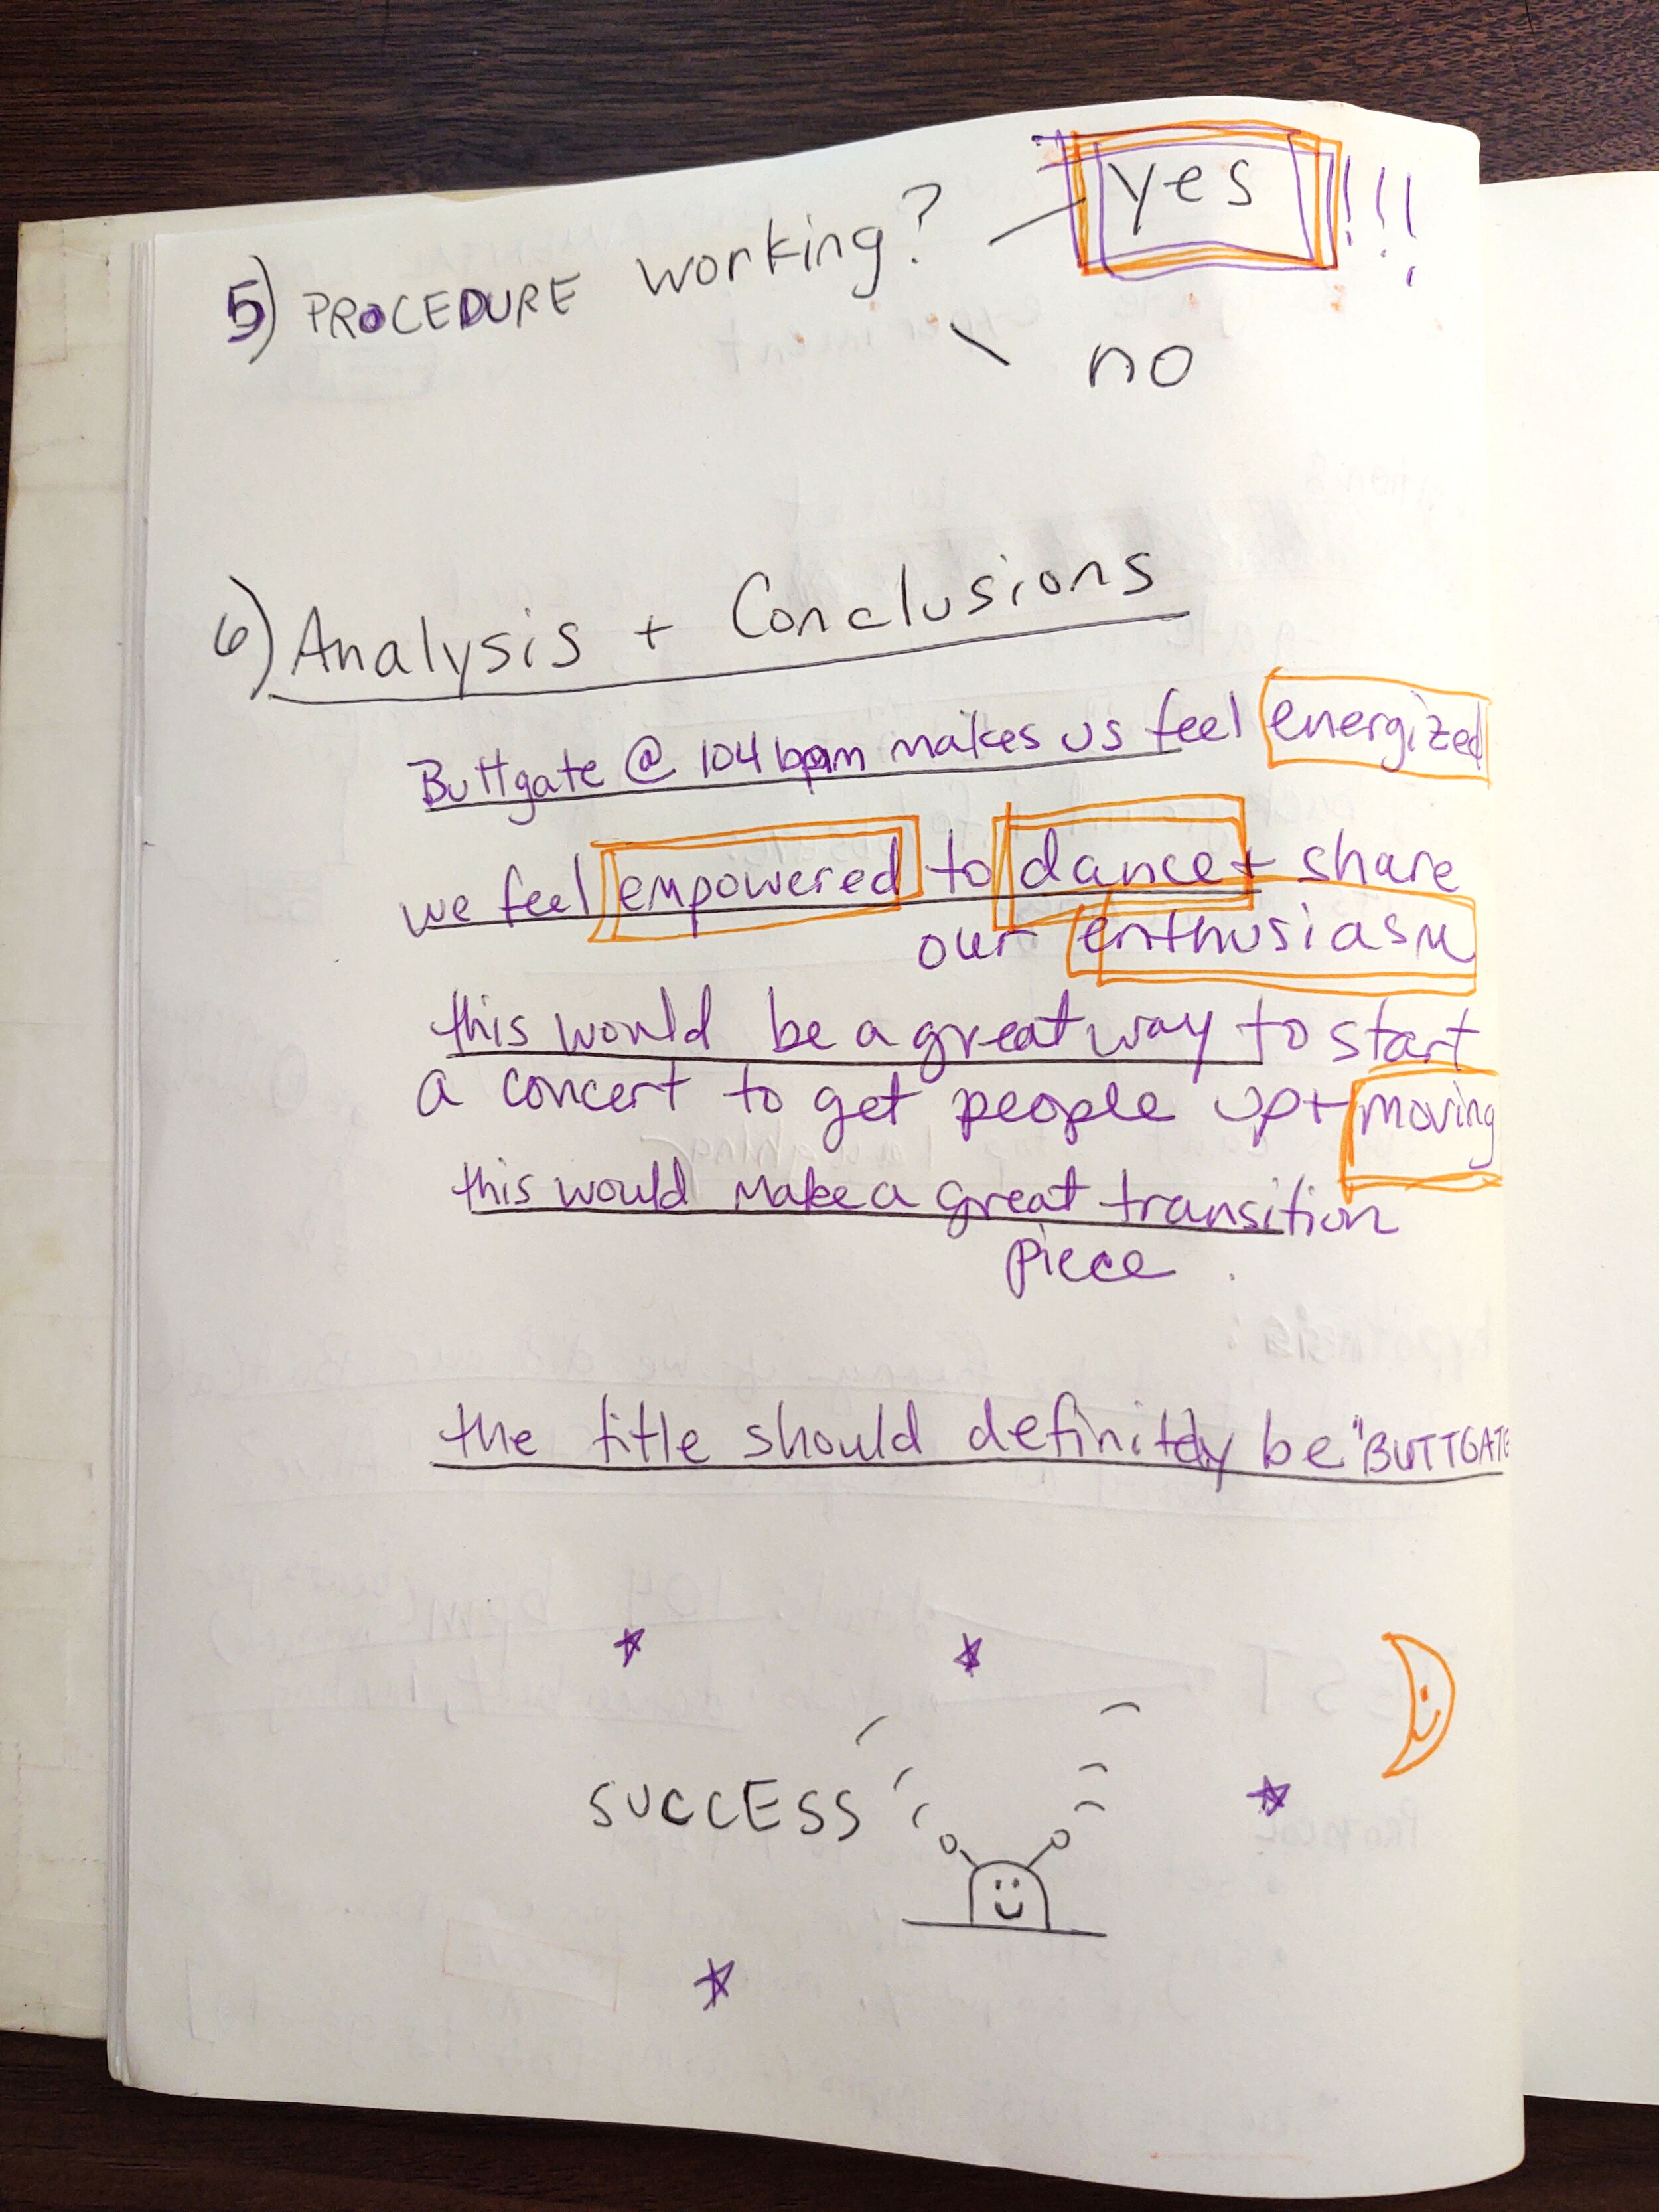 yes !!!
5) PROCEDURE working?
no
6) Analysis + Conclusions
Buttgate @ 104 bpm makes us feel energized
we feel empowered to dance + share
our enthusiasm
this would be a great way to start
a concert to get people up + moving
this would make a great transition
piece.
the title should definitely be "BUTTGATE
SUCCESS